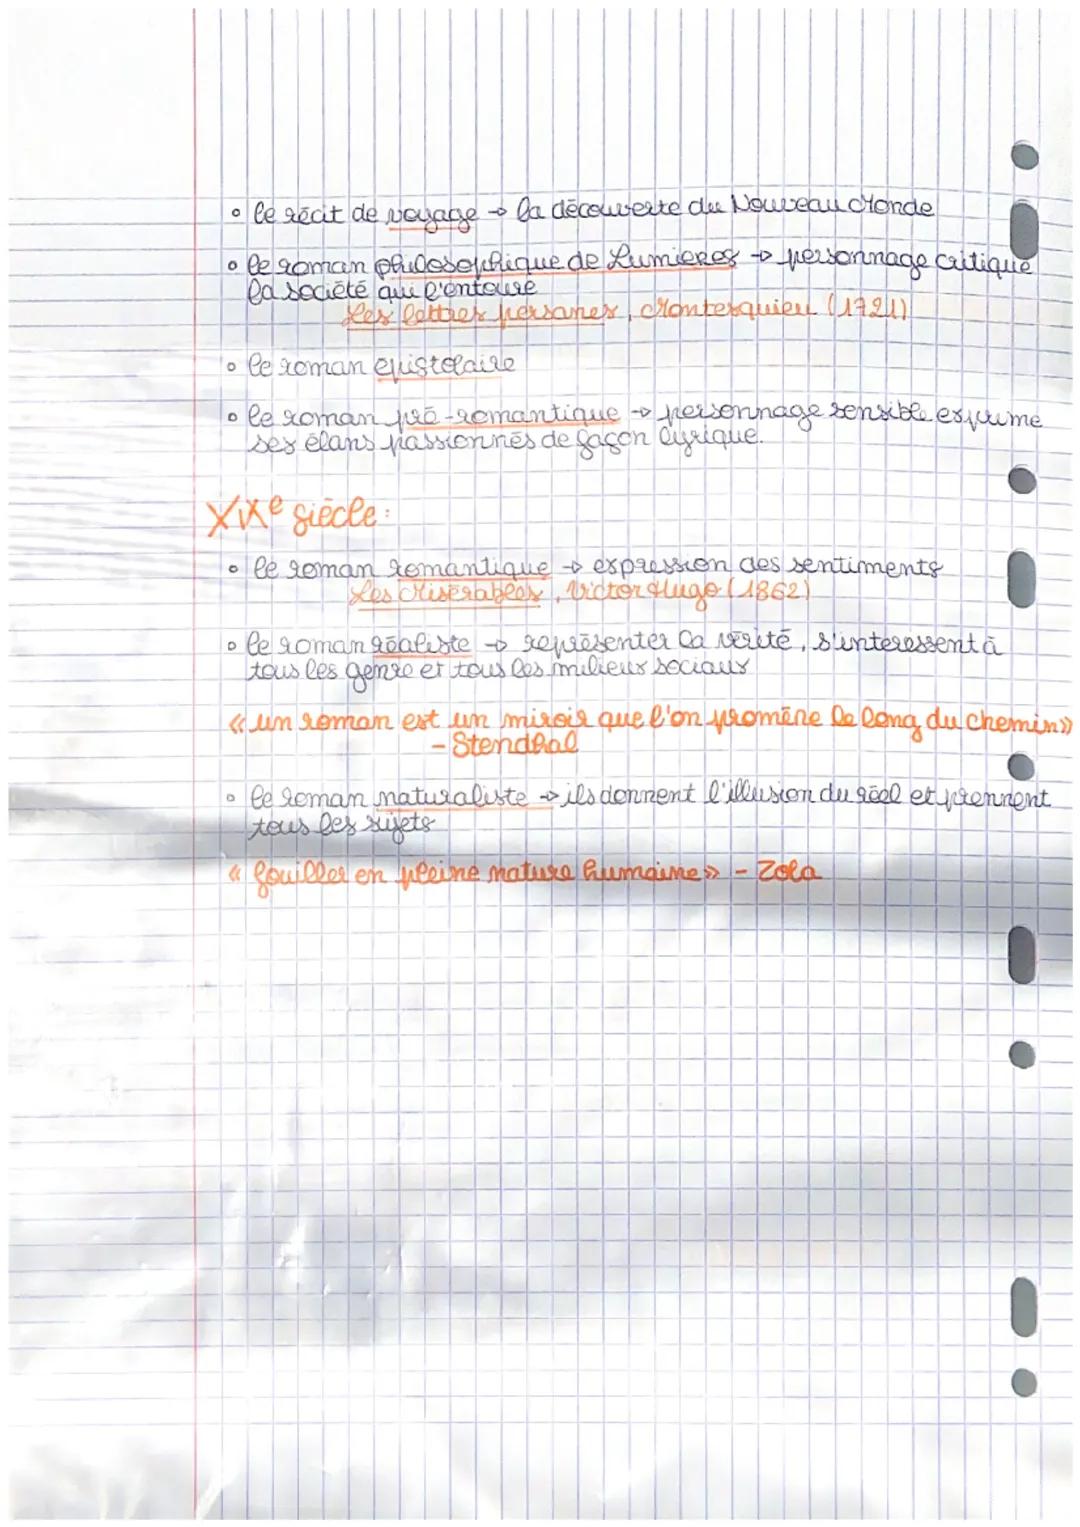 ° le récit de voyage → la découverte du Nouveau Monde
° le roman philosophique de Lumières → personnage critique
la société qui l'entoure
Les lettres persanes, Montesquieu (1721)
° le roman épistolaire
° le roman pré-romantique → personnage sensible exprime
ses élans passionnés de façon lyrique.
XIXe siècle :
° le roman romantique → expression des sentiments
Les Misérables, Victor Hugo (1862)
° le roman réaliste → représenter la vérité, s'interessent à
tous les genre et tous les milieux sociaux
« un roman est un miroir que l'on promène le long du chemin»
- Stendhal
° le roman naturaliste → ils donnent l'illusion du réel et prennent
tous les sujets
« fouiller en pleine nature humaine» - Zola